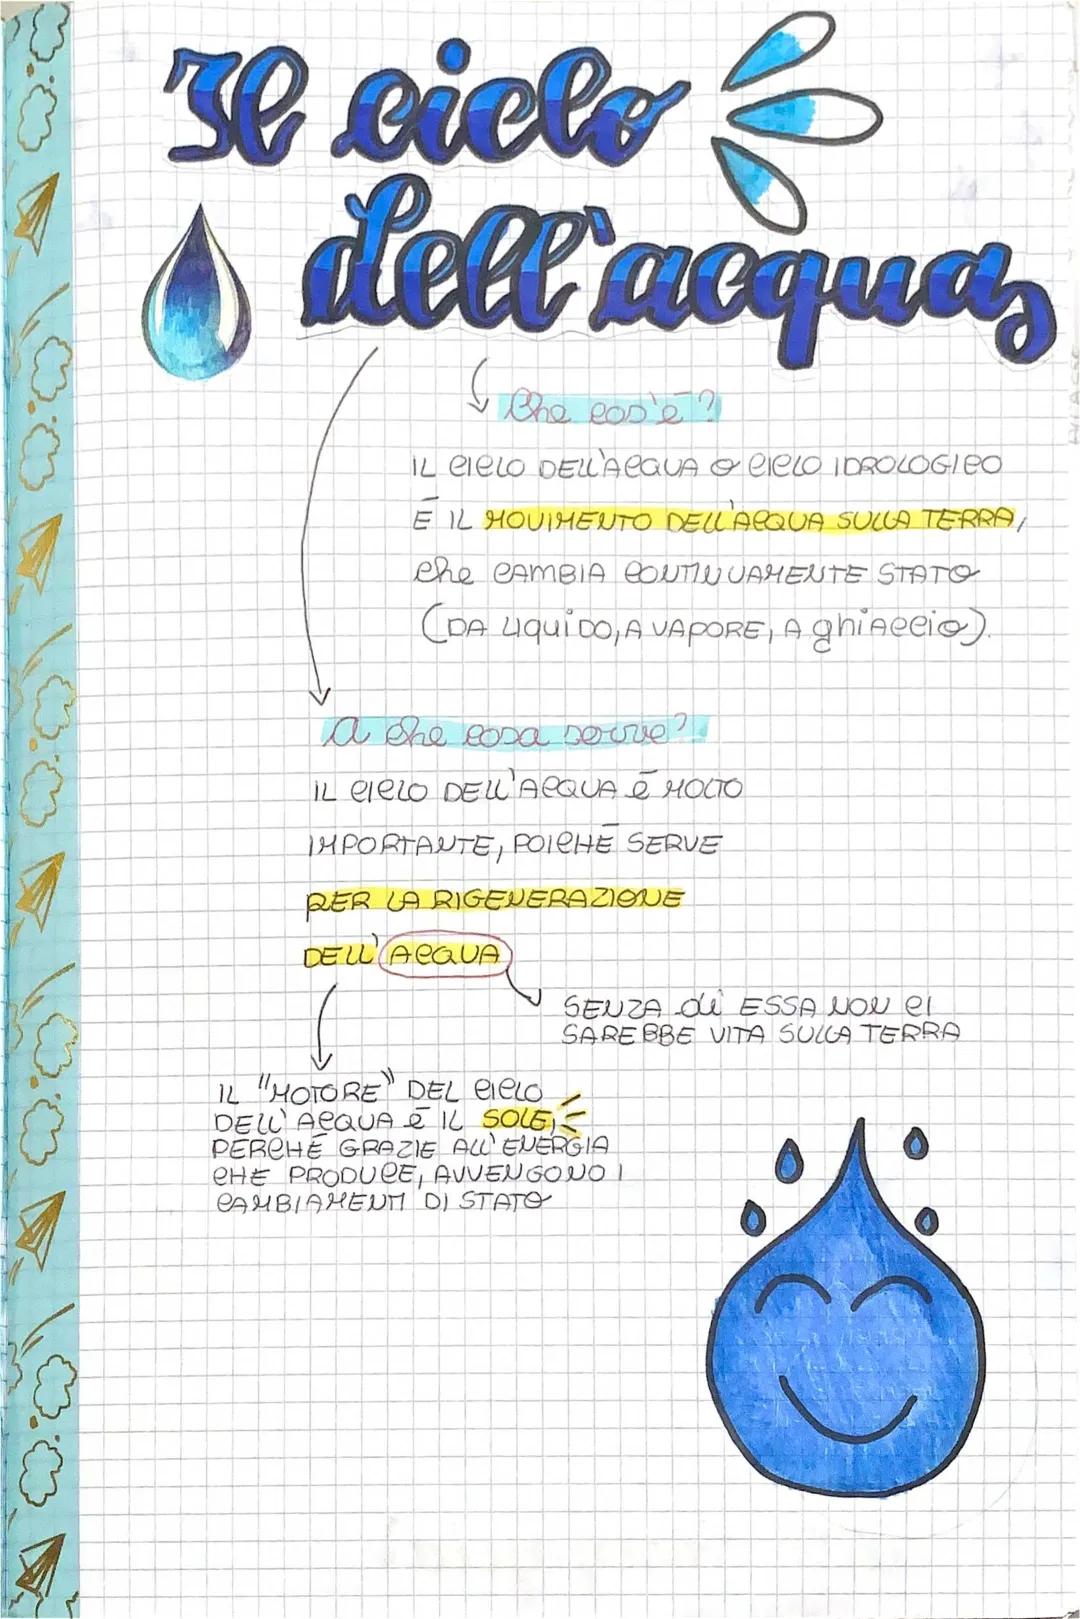 Il ciclo
dell'acqua
Che cos'è?
IL CICLO DELL'ACQUA O CICLO IDROLOGICO
È IL MOVIMENTO DELL'ACQUA SULLA TERRA,
che CAMBIA CONTINUAMENTE STATO
(DA LIQUIDO, A VAPORE, A ghiAccio).
A che cosa serve?
IL CICLO DELL'ACQUA È MOLTO
IMPORTANTE, POICHÉ SERVE
PER LA RIGENERAZIONE
DELL'ACQUA
SENZA di ESSA NON CI
SAREBBE VITA SULLA TERRA
IL "MOTORE" DEL CICLO
DELL'ACQUA È IL SOLE,
PERCHÉ GRAZIE ALL'ENERGIA
CHE PRODUCE, AVVENGONO I
CAMBIAMENTI DI STATO